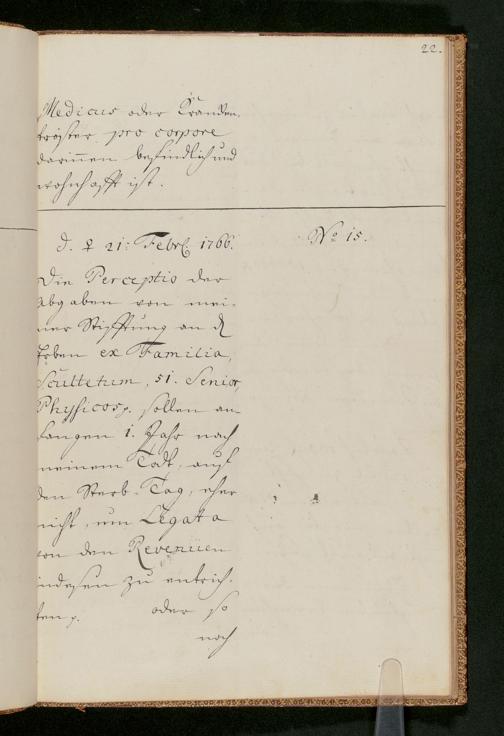 22.
Medicus oder Krancken-
tröster pro corpore
darinnen befindlich und
wohnhafft ist.
d. ♀ 21. Febr. 1766.
No 15.
Die Perceptio der
Abgaben von mei-
ner Stifftung an d
Erben ex Familia,
Scultetum, 51. Senior,
Physicos p. sollen an-
fangen 1. Jahr nach
meinem Todt, auf
den Sterb-Tag, eher
nicht, um Legata
von den Revenüen
indeßen zu entrich-
ten p. oder so
noch